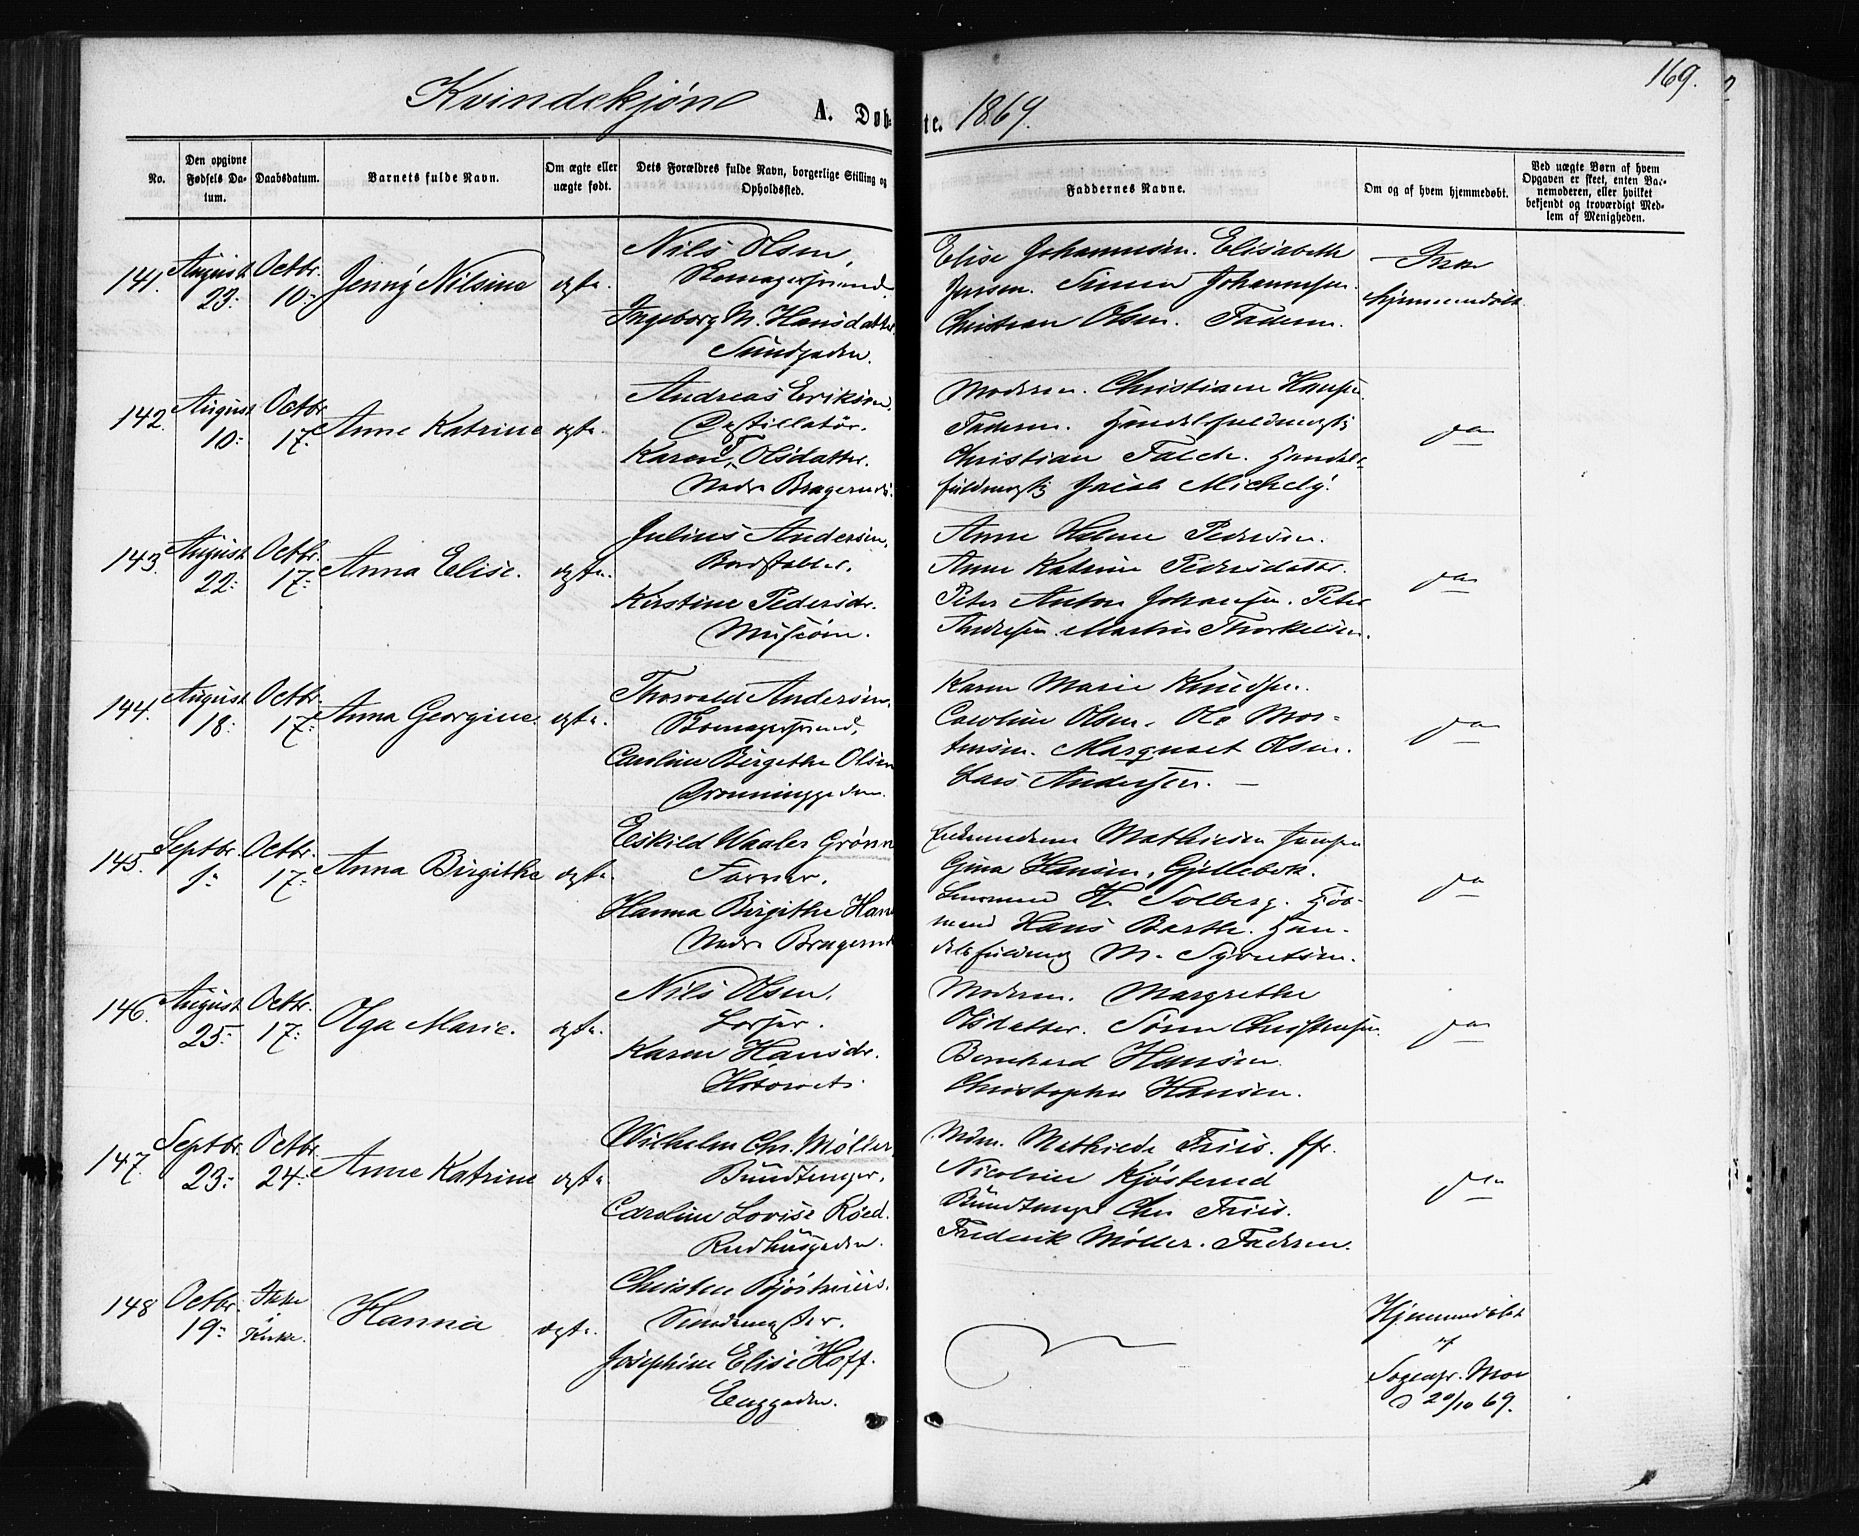 169.
Kvindekjøn A. Døbte. 1869.
No.
Den opgivne Fødsels Datum.
Daabsdatum.
Barnets fulde Navn.
Om ægte eller uægte født.
Dets Forældres fulde Navn, borgerlige Stilling og Opholdssted.
Faddernes Navne.
Om og af hvem hjemmedøbt.
Ved uægte Børn af hvem Opgaven er skeet, enten Barnemoderen, eller hvilket bekjendt og troværdigt Medlem af Menigheden.
141. August 23: Octbr. 10: Jenny Nilsine ægte.
Nils Olsen,
Skomagersvend,
Ingeborg M. Hansdatter
Sundgaden.
Elise Johannesen. Elisabeth
Jensen. Simen Johannesen.
Christian Olsen. Faderen.
Ikke
hjemmedøbt
142. August 10: Octbr. 17. Anne Katrine ægte.
Andreas Eriksen,
Destillatør.
Karen Olsdatter.
Nedre Bragernæs.
Moderen. Christiane Hansen
Faderen. Handelsfuldmægtig
Christian Falch. Handels-
fuldmægtig Jacob Michely.
do
143. August 22: Octbr. 17: Anna Elise. ægte.
Julius Andersen,
Bordstabler.
Kirstine Pedersdr.
Museøen.
Anne Helene Pedersen.
Anne Katrine Pedersdatter.
Peter Anton Johansen. Peter
Andresen. Martin Thorkelsen.
do
144. August 18: Octbr. 17: Anna Georgine. ægte.
Thorvald Andersen,
Skomagersvend,
Caroline Birgithe Olsen
Dronninggaden.
Karen Marie Knudsen.
Caroline Olsen. Ole Mor-
tensen. Margureth Olsen.
Lars Andersen. —
do
145. Septbr. 1: Octbr. 17: Anna Birgithe ægte.
Eskild Waaler Grønn
Farver.
Hanna Birgithe Han
Nedre Bragernæ
Mathisen Jensen
Gina Hansen, Gjellebek.
H. Solberg.
Hans Barth. Han-
delsfuldmæg M. Syvertsen.
do
146. August 25: Octbr. 17: Olga Marie. ægte.
Nils Olsen.
Karen Hansdr.
Høtorvet.
Moderen. Margrethe
Olsdatter. Søren Christensen.
Bernhard Hansen.
Christopher Hansen.
do
147. Septbr. 23: Octbr. 24: Anne Katrine ægte
Wilhelm Chr. Møller,
Bundtmager,
Caroline Lovise Røed.
Raadhusgaden.
Mdm. Mathilde Friis. Jfr.
Nicoline Kjøsterud
Bundtmager Chr. Friis.
Frederik Møller. Faderen.
do
148 Octbr. 19: Ikke i Kirke. Hanna ægte.
Josephine Elise Hoff.
Enggaden.
Hjemmedøbt
af
Sognepr. Moe
d 20/10 69.